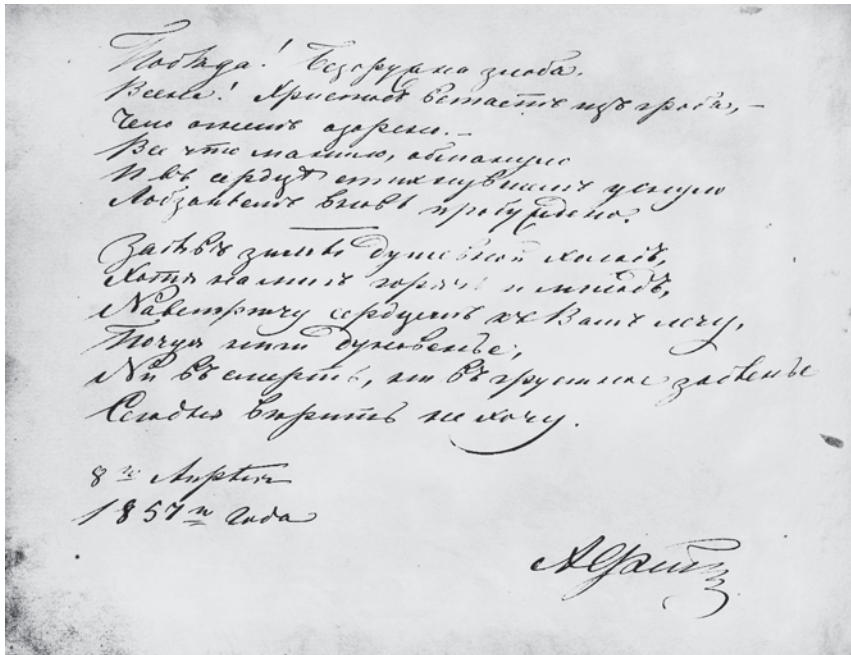 Побѣда! Безоружна злоба.
Весна! Христосъ встаетъ изъ гроба, –
Чело огнемъ озарено. –
Все что манило, обмануло
И въ сердцѣ стихнувшемъ уснуло
Лобзаньемъ вновь пробуждено.
Забывъ зимы душевной холодъ,
Хотя на мигъ горячь и молодъ,
Навстрѣчу сердцемъ къ Вамъ лечу,
Почуя нѣги дуновенье,
Ни въ смерть, ни въ грустное забвенье
Сегодня вѣрить не хочу.
8го Апрѣля
1857го года
А Фетъ